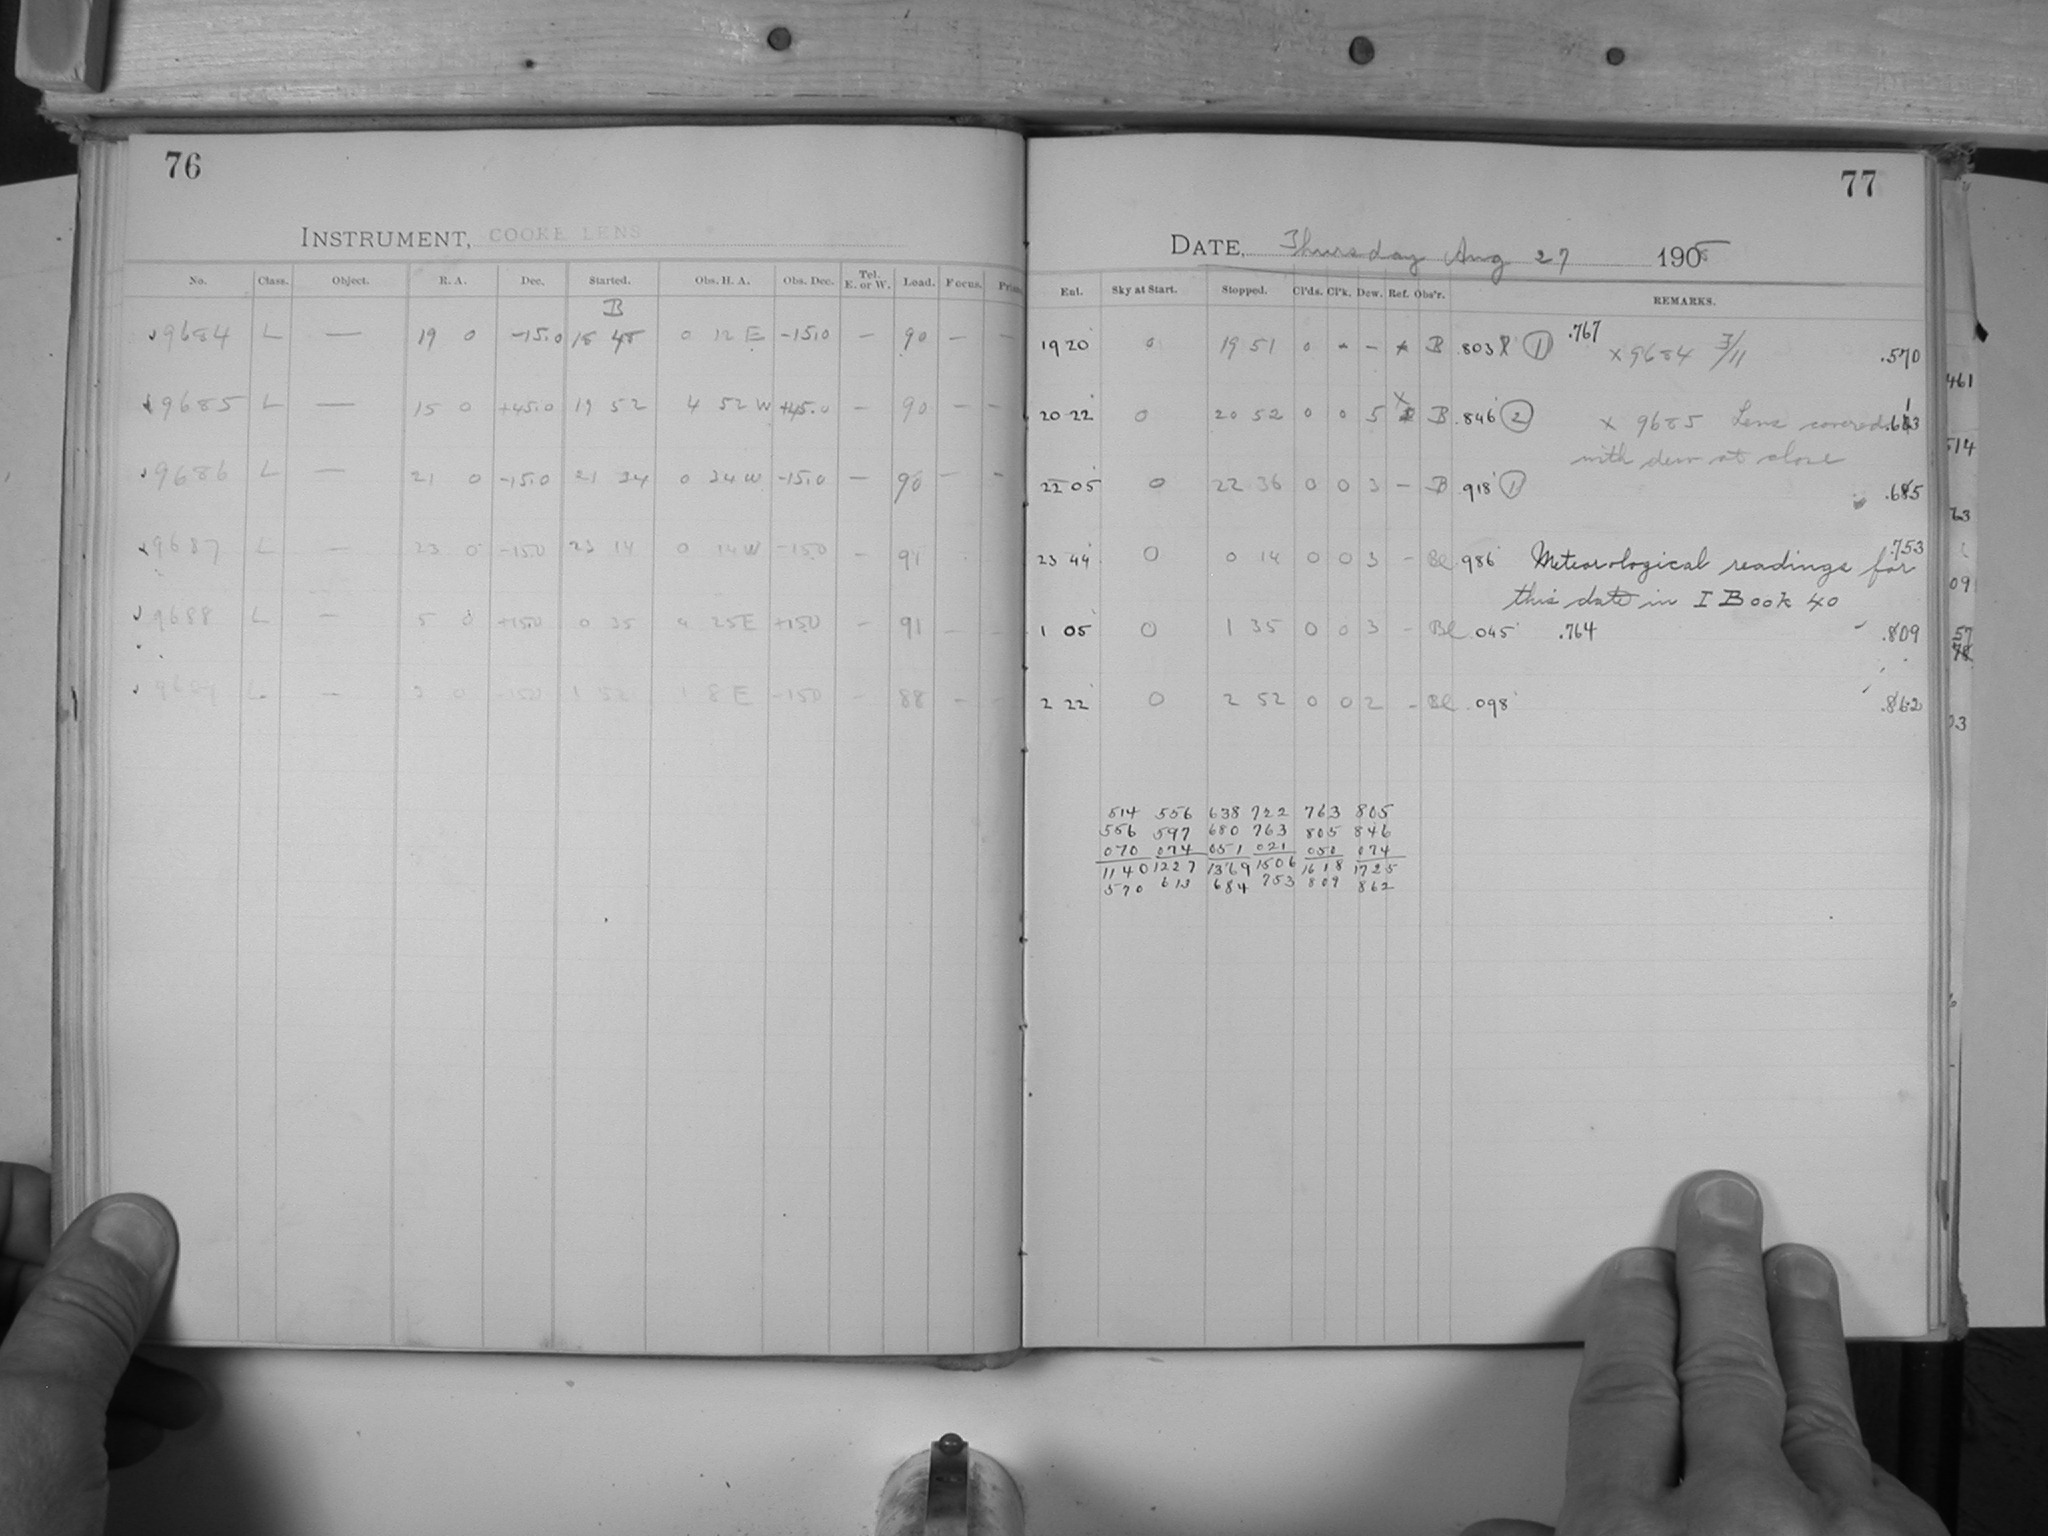 76
INSTRUMENT, COOKE LENS
No. Class. Object. R. A. Dec. Started. Obs. H. A. Obs. Dec. Tel. E. or W. Load. Focus.
B
9684 L — 19 0 -15.0 18 48 0 12 E -15.0 — 90 — —
9685 L — 15 0 +45.0 19 52 4 52 W +45.0 — 90 — —
9686 L — 21 0 -15.0 21 34 0 34 W -15.0 — 90 — —
9687 L — 23 0 -15.0 23 14 0 14 W -15.0 — 91
9688 L — 5 0 +15.0 0 35 4 25 E +15.0 — 91 — —
9689 L — 3 0 -15.0 1 52 1 8 E -15.0 — 88 — —
77
DATE, Thursday Aug 27 1908
Ent. Sky at Start. Stopped. Cl'ds. Cl'k. Dew. Ref. Obs'r. REMARKS.
19 20 0 19 51 0 - - * B .803 1 .767 x 9684 3/11 .570
20 22 0 20 52 0 0 5 x B .846 2 x 9685 Lens covered .613
with dew at close
22 05 0 22 36 0 0 3 — B .918 1 .685
23 44 0 0 14 0 0 3 - Bl .986 Meteorological readings for .753
this date in I Book 40
1 05 0 1 35 0 0 3 - Bl .045 .764 .809
2 22 0 2 52 0 0 2 - Bl .098 .862
514 556 638 722 763 805
556 597 680 763 805 846
070 074 051 021 050 074
1140 1227 1369 1506 1618 1725
570 613 684 753 809 862
461
514